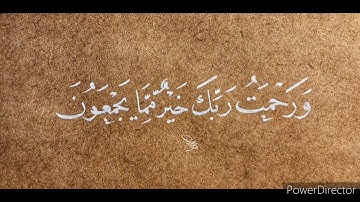 وَرَحْمَتُ رَبِّكَ خَيْرٌ مِّمَّا يَجْمَعُونَ
PowerDirector